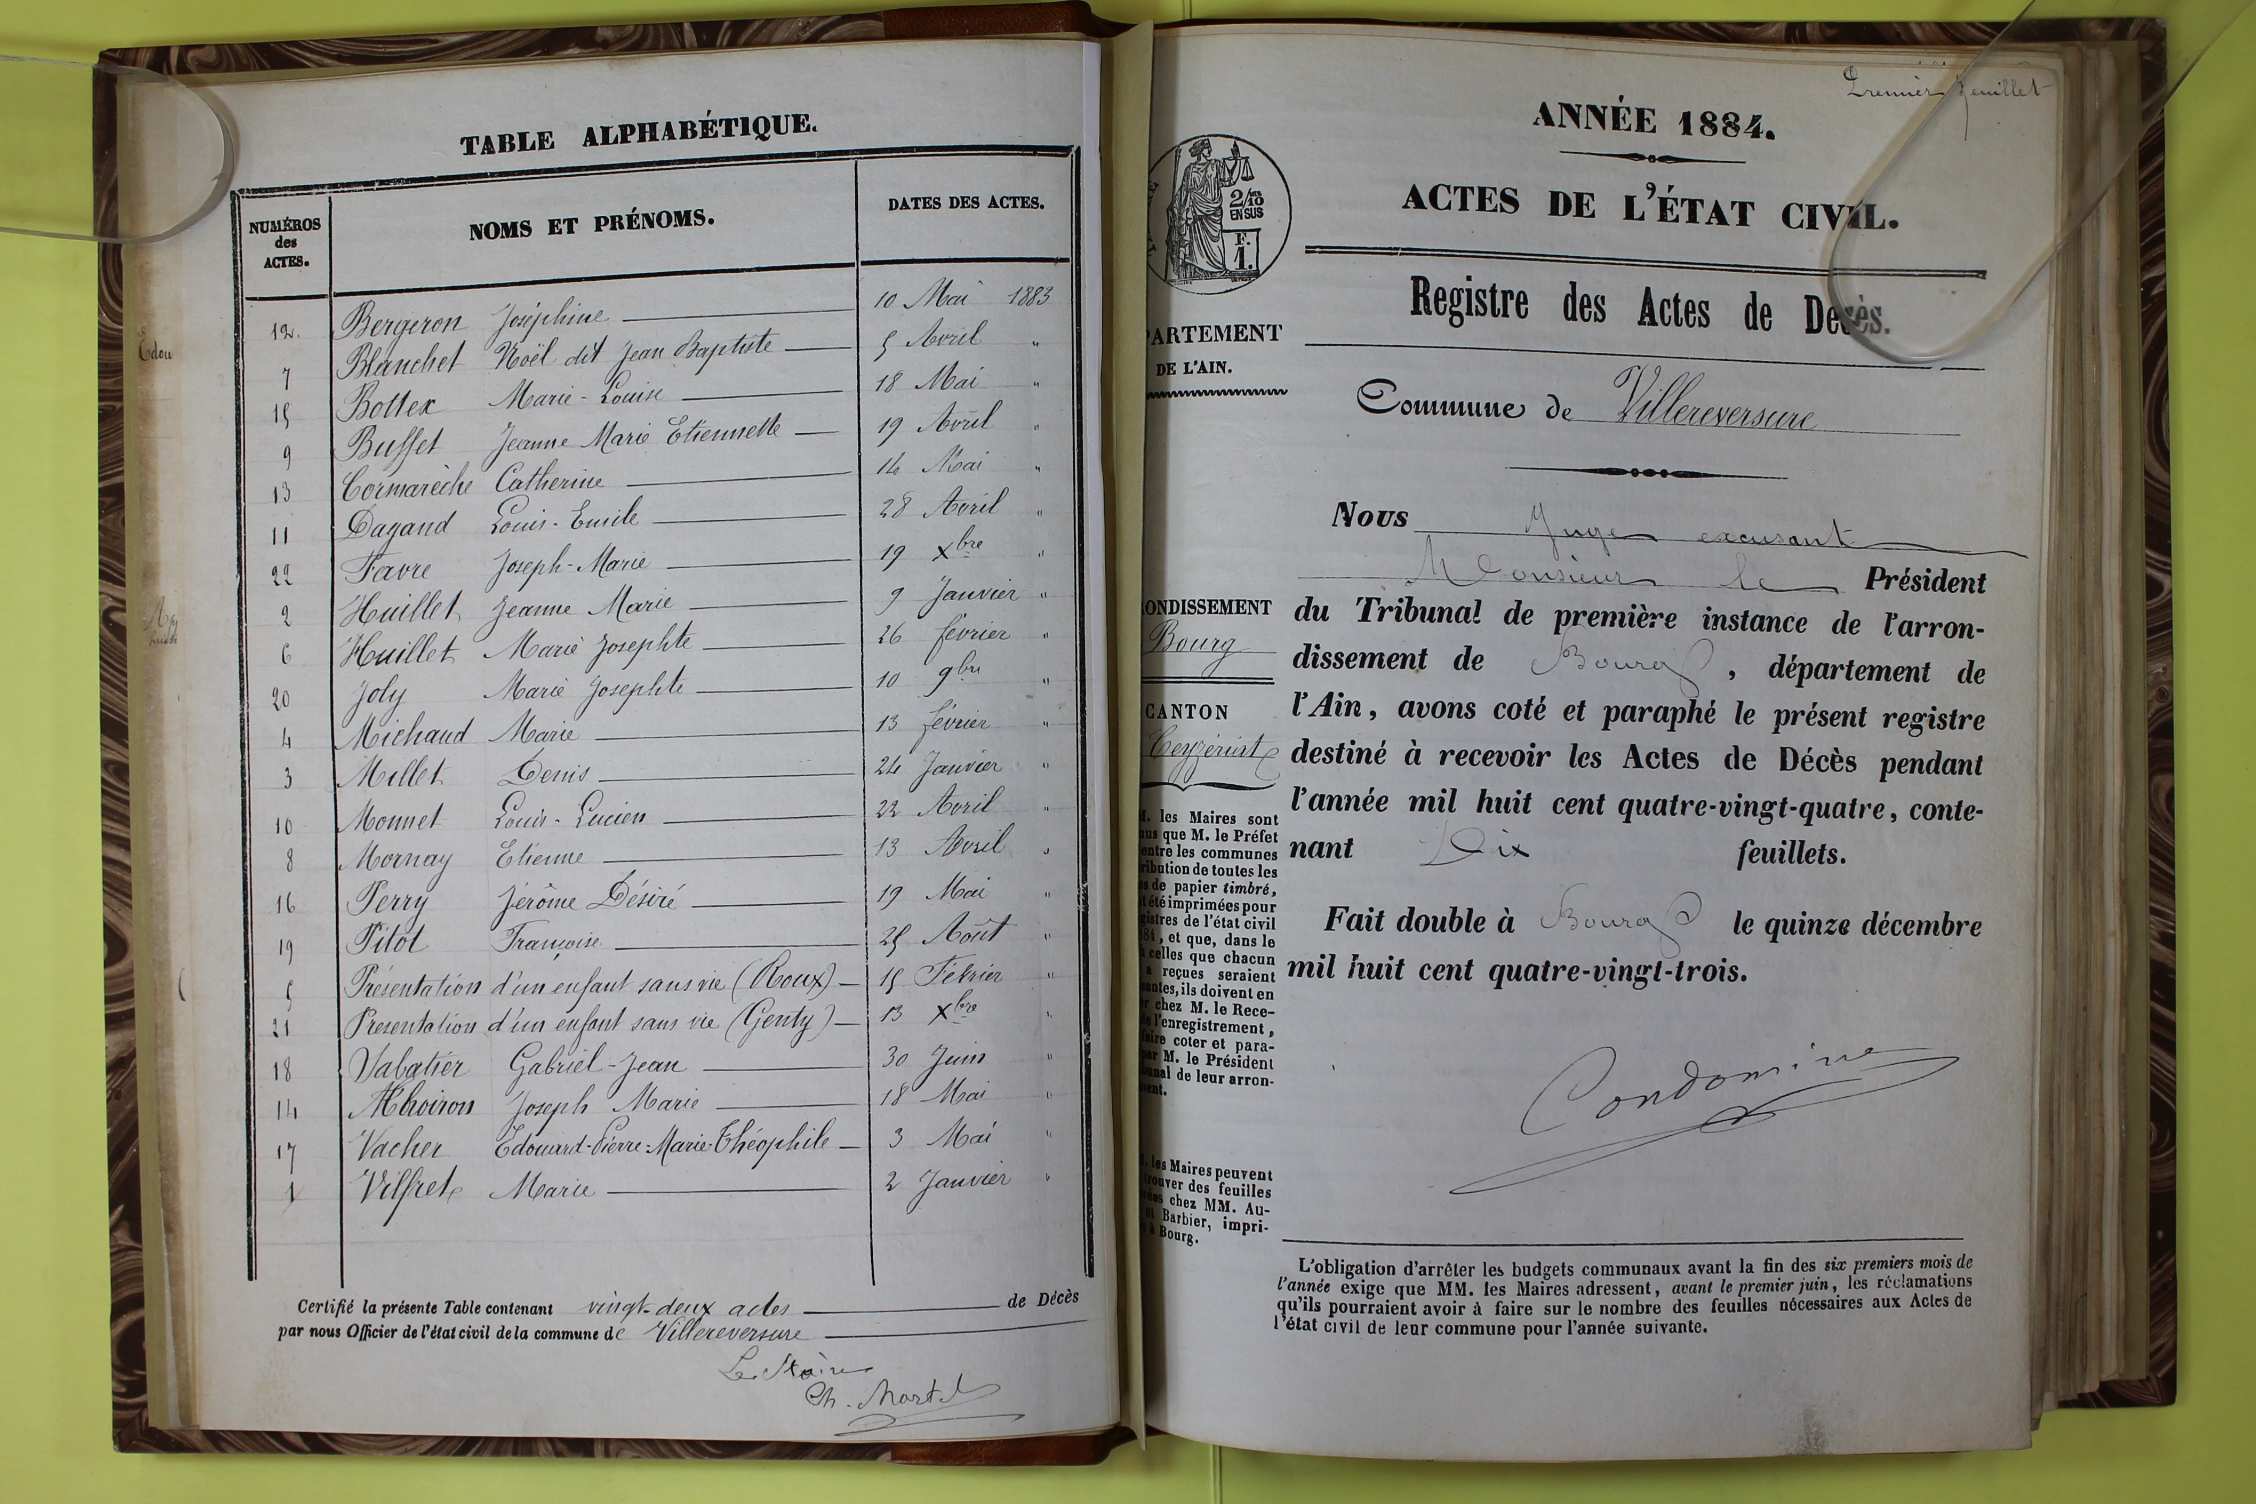 TABLE ALPHABÉTIQUE.
NUMÉROS des ACTES. NOMS ET PRÉNOMS. DATES DES ACTES.
12. Bergeron Joséphine 10 Mai 1883
7 Blanchet Noël dit Jean Baptiste 5 Avril "
15 Bottex Marie-Louise 18 Mai "
9 Buffet Jeanne Marie Etiennette 19 Avril "
13 Cormarèche Catherine 14 Mai "
11 Dagand Louis-Emile 28 Avril "
22 Favre Joseph-Marie 19 Xbre "
2 Huillet Jeanne Marie 9 Janvier "
6 Huillet Marie Josephte 26 février "
20 Joly Marie Josephte 10 9bre "
4 Michaud Marie 13 février "
3 Millet Denis 24 Janvier "
10 Monnet Louis-Lucien 22 Avril "
8 Mornay Etienne 13 Avril "
16 Perry Jérôme Désiré 19 Mai "
19 Pitot Françoise 25 Août "
5 Présentation d'un enfant sans vie (Roux) 15 Février "
21 Présentation d'un enfant sans vie (Genty) 13 Xbre "
18 Sabatier Gabriel-Jean 30 Juin "
14 Thoiron Joseph Marie 18 Mai "
17 Vacher Edouard-Pierre-Marie-Théophile 3 Mai "
1 Vilfret Marie 2 Janvier "
Certifié la présente Table contenant vingt-deux actes de Décès
par nous Officier de l'état civil de la commune de Villereversure
Le Maire
Ch. Martel
Edou
Premier feuillet
ANNÉE 1884.
ACTES DE L'ÉTAT CIVIL.
2/10 EN SUS
F. 1.
Registre des Actes de Décès.
PARTEMENT
DE L'AIN.
Commune de Villereversure
Nous Juge excusant
Monsieur le Président
du Tribunal de première instance de l'arron-
dissement de Bourg, département de
l'Ain, avons coté et paraphé le présent registre
destiné à recevoir les Actes de Décès pendant
l'année mil huit cent quatre-vingt-quatre, conte-
nant Dix feuillets.
Fait double à Bourg le quinze décembre
mil huit cent quatre-vingt-trois.
Condomine
ONDISSEMENT
Bourg
CANTON
Ceyzériat
M. les Maires sont
que M. le Préfet
entre les communes
ribution de toutes les
de papier timbré,
été imprimées pour
gistres de l'état civil
84, et que, dans le
celles que chacun
reçues seraient
antes, ils doivent en
chez M. le Rece-
l'enregistrement,
faire coter et para-
par M. le Président
unal de leur arron-
ment.
les Maires peuvent
trouver des feuilles
chez MM. Au-
Barbier, impri-
à Bourg.
L'obligation d'arrêter les budgets communaux avant la fin des six premiers mois de
l'année exige que MM. les Maires adressent, avant le premier juin, les réclamations
qu'ils pourraient avoir à faire sur le nombre des feuilles nécessaires aux Actes de
l'état civil de leur commune pour l'année suivante.